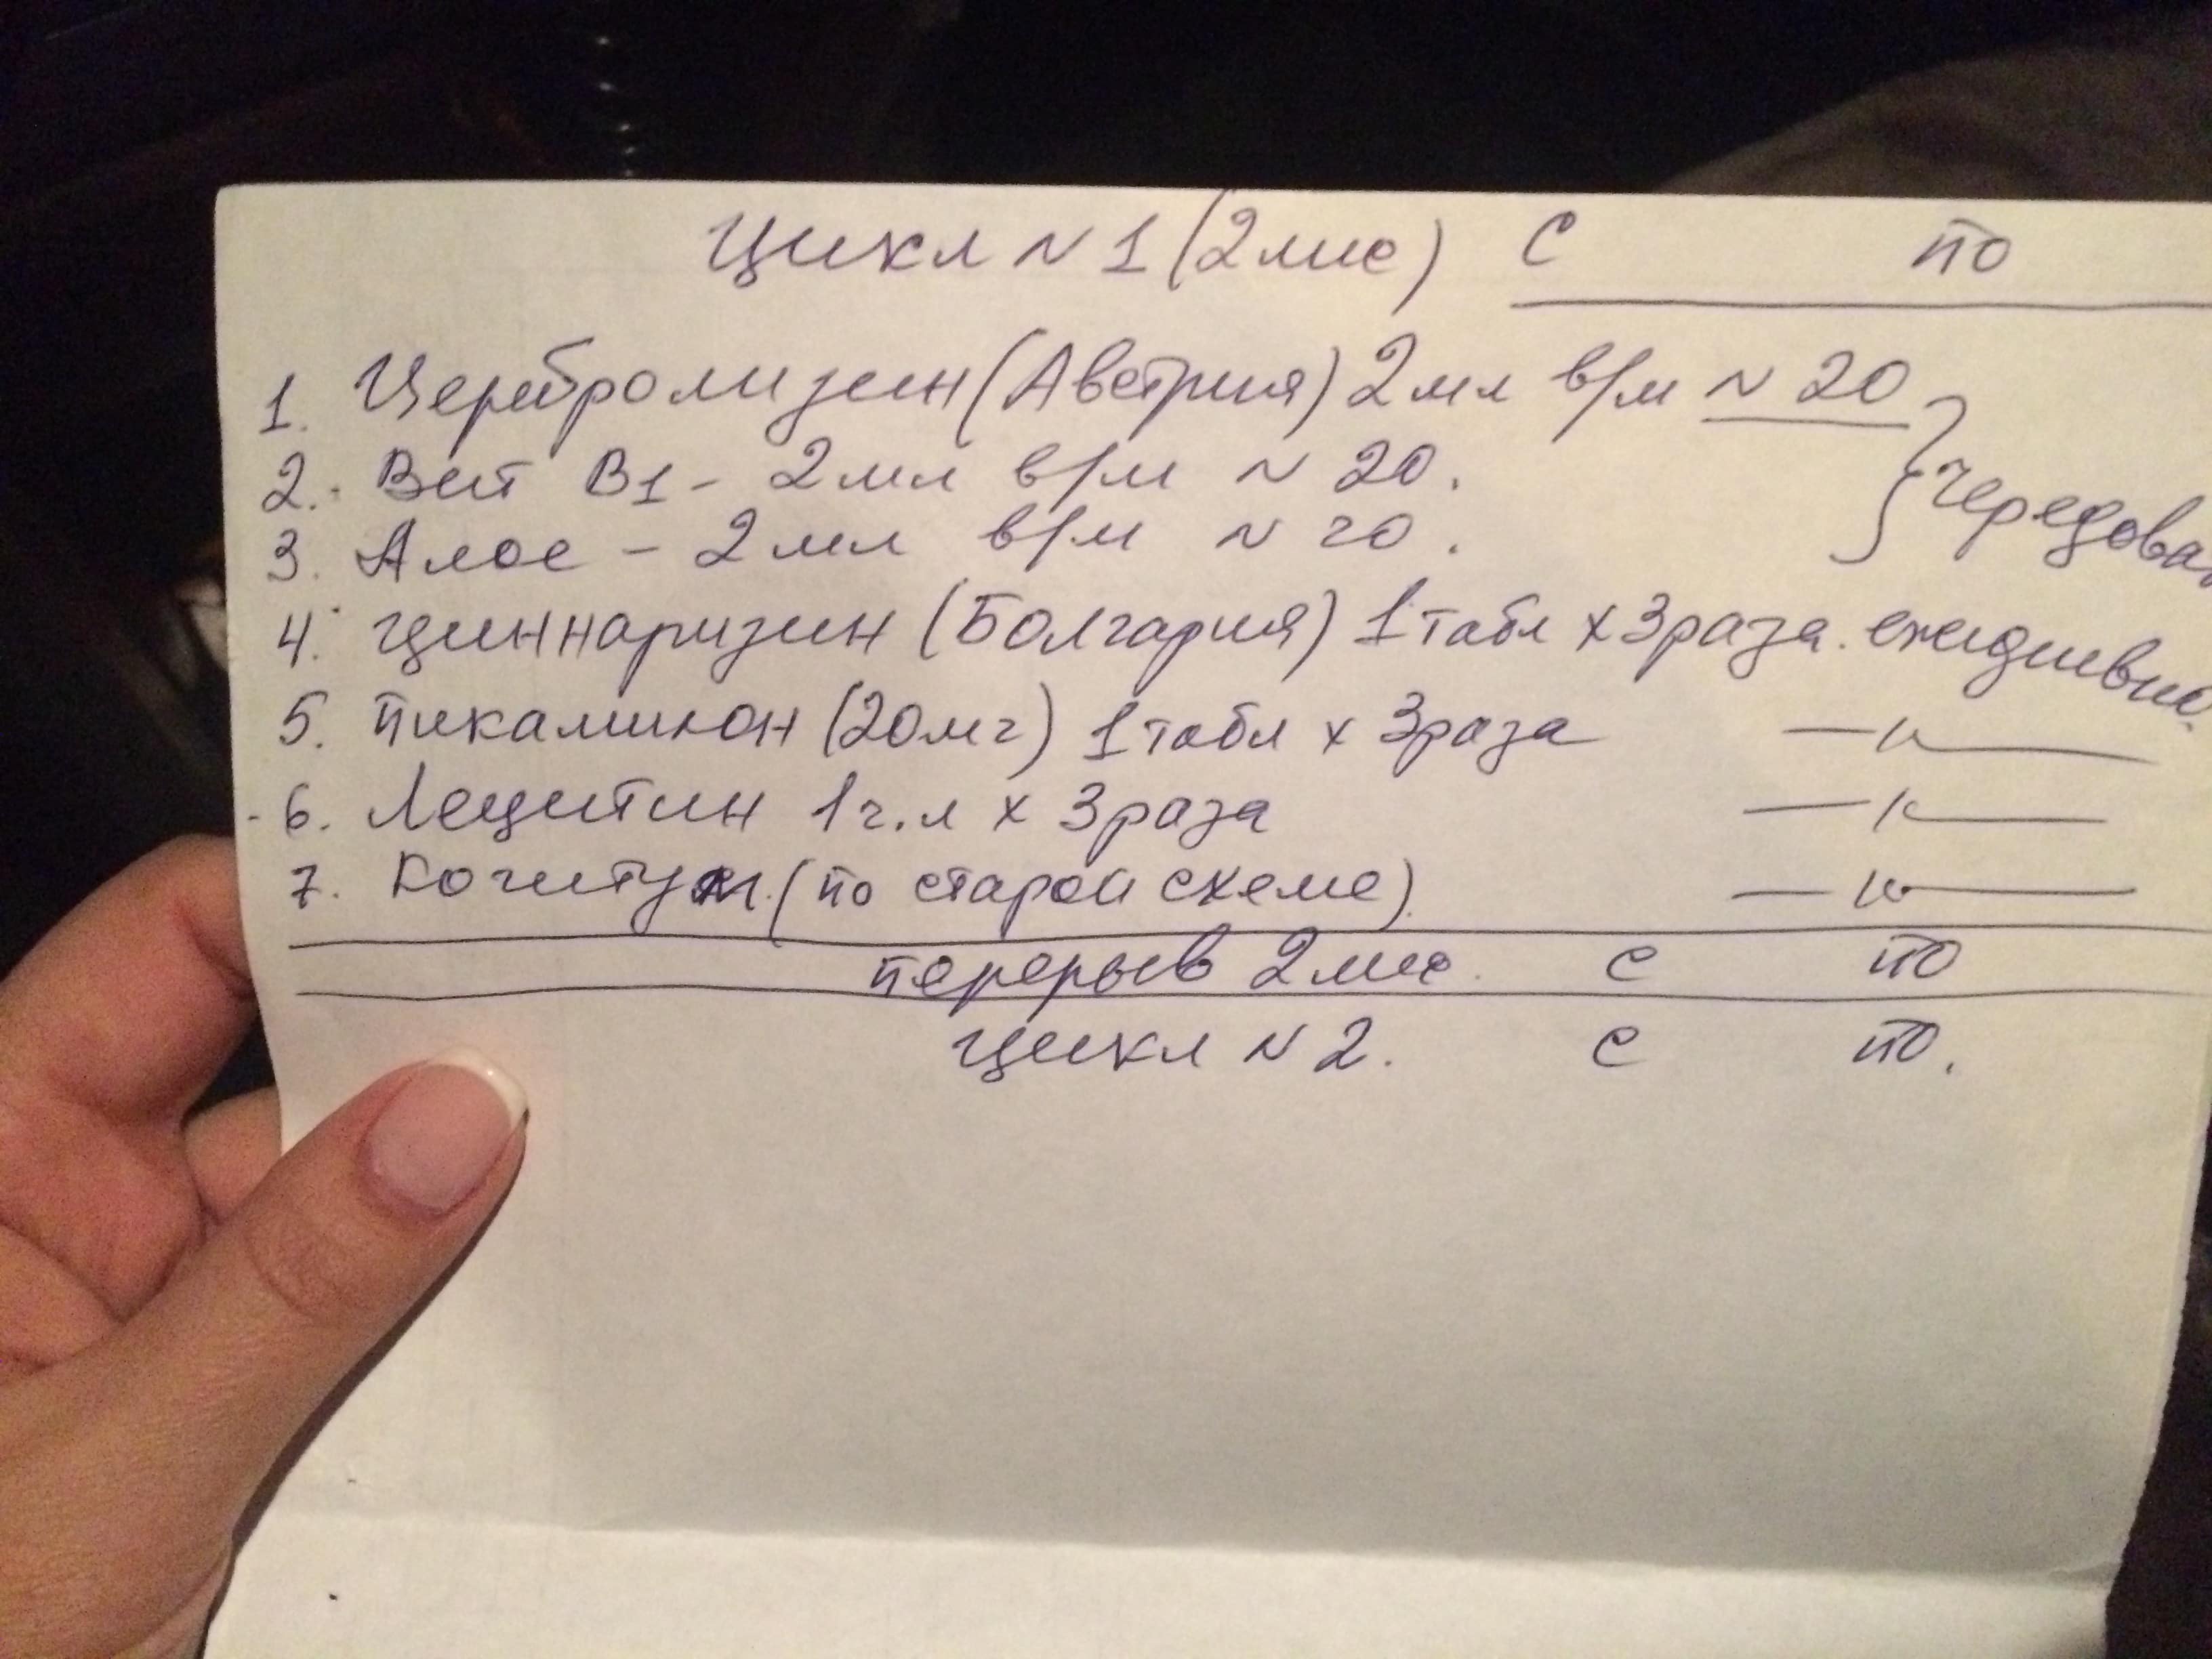 Цикл N 1 (2 мес) с по
1. Церебролизин (Австрия) 2 мл в/м N 20
2. Вит В1 - 2 мл в/м N 20.
3. Алоэ - 2 мл в/м N 20.
чередова
4. Циннаризин (Болгария) 1 табл х 3 раза. ежедневно.
5. Пикамилон (20 мг) 1 табл х 3 раза —"—
6. Лецитин 1 ч.л х 3 раза —"—
7. Когитум (по старой схеме). —"—
перерыв 2 мес. с по
Цикл N 2. с по.